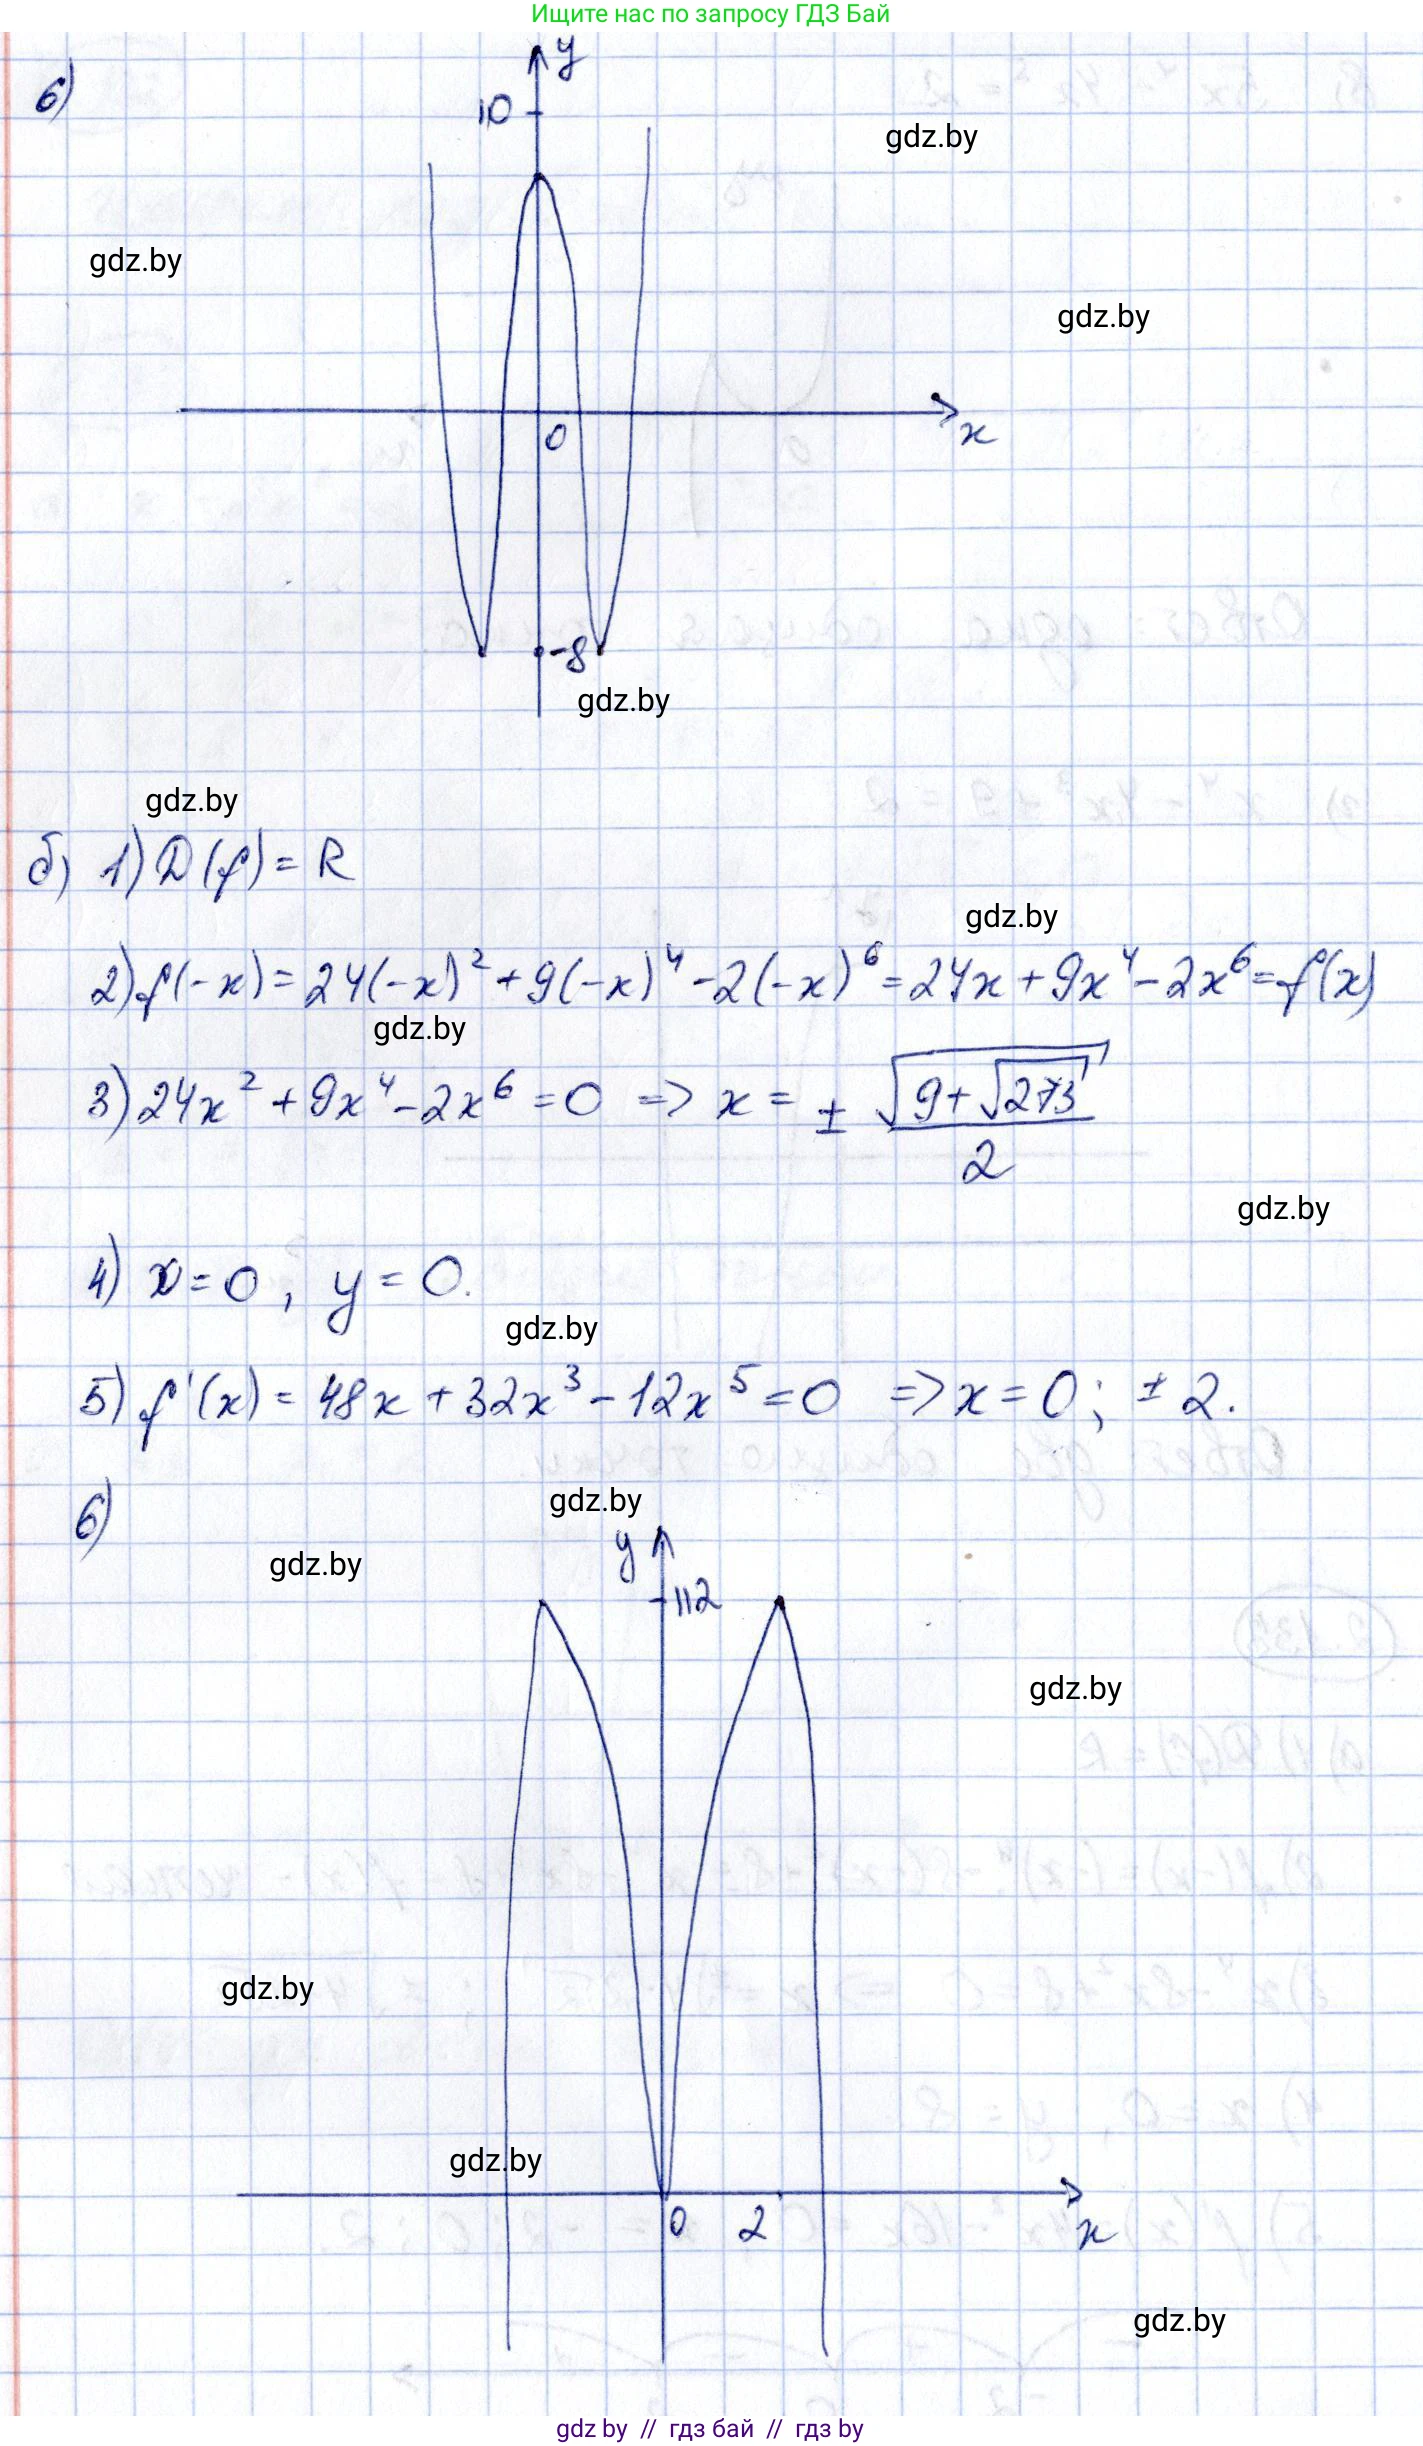 Ищите нас по запросу ГДЗ Бай
6)
y
10
gdz.by
gdz.by
gdz.by
0
x
-8
gdz.by
gdz.by
б) 1) D(f) = R
gdz.by
2) f(-x) = 24(-x)² + 9(-x)⁴ - 2(-x)⁶ = 24x + 9x⁴ - 2x⁶ = f(x)
gdz.by
3) 24x² + 9x⁴ - 2x⁶ = 0 => x = ± √(9+√273) / 2
gdz.by
4) x = 0, y = 0.
gdz.by
5) f'(x) = 48x + 32x³ - 12x⁵ = 0 => x = 0; ± 2.
6)
gdz.by
gdz.by
y
112
gdz.by
gdz.by
gdz.by
0 2
x
gdz.by
gdz by // гдз бай // гдз by